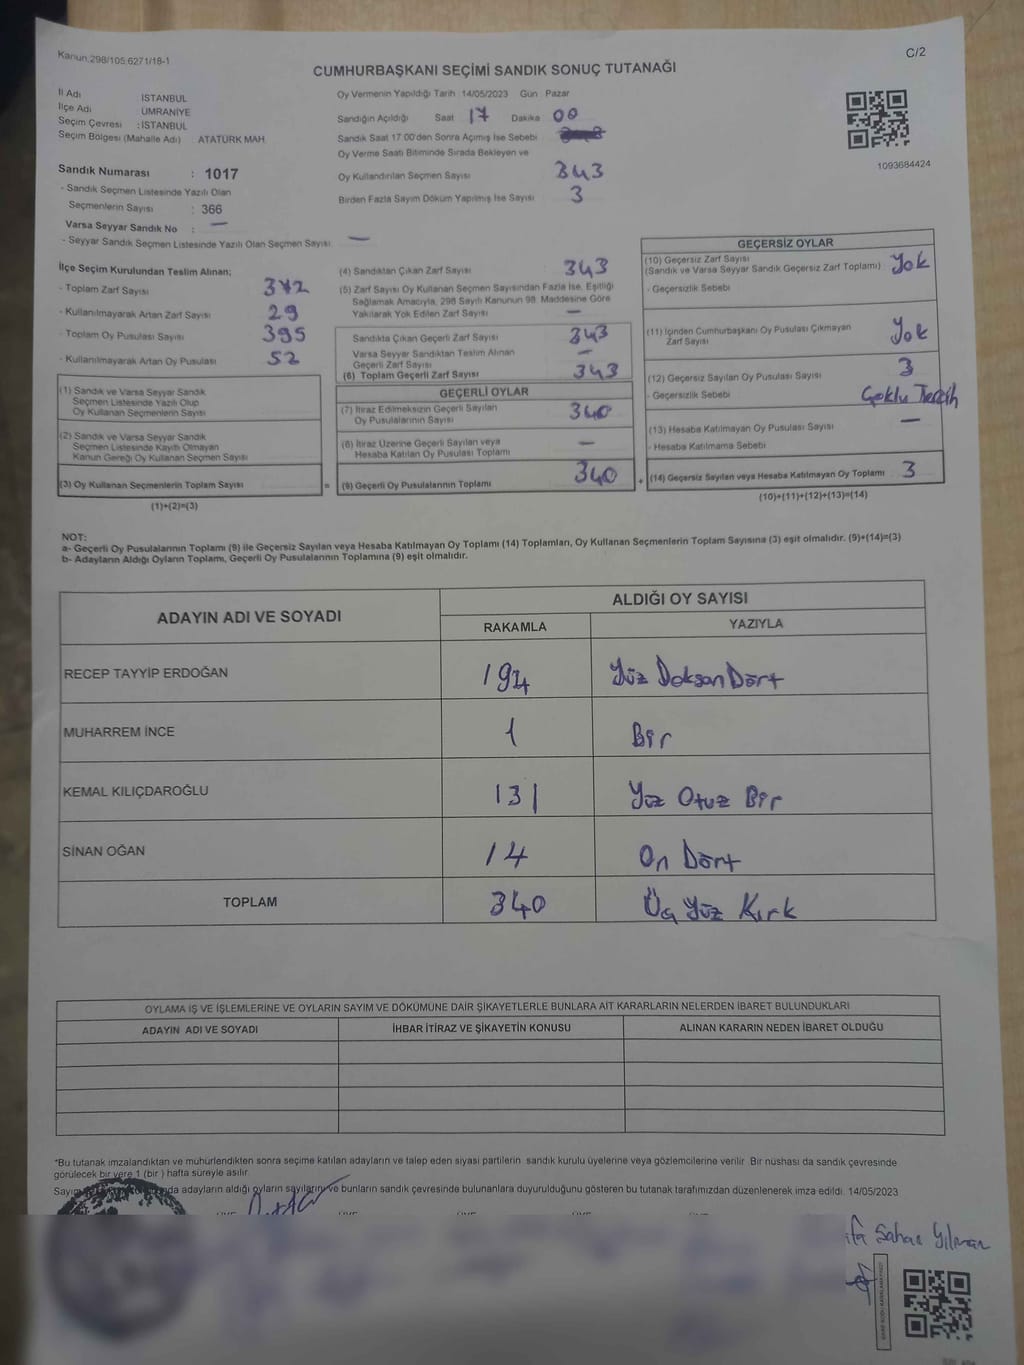 Kanun.298/105 6271/18-1
C/2
CUMHURBAŞKANI SEÇİMİ SANDIK SONUÇ TUTANAĞI
İl Adı İSTANBUL
İlçe Adı ÜMRANİYE
Seçim Çevresi : İSTANBUL
Seçim Bölgesi (Mahalle Adı) ATATÜRK MAH
Oy Vermenin Yapıldığı Tarih 14/05/2023 Gün Pazar
Sandığın Açıldığı Saat 17 Dakika 00
Sandık Saat 17:00'den Sonra Açımış İse Sebebi
Oy Verme Saati Bitiminde Sırada Bekleyen ve
Oy Kullandırılan Seçmen Sayısı 343
Birden Fazla Sayım Döküm Yapılmış İse Sayısı 3
1093684424
Sandık Numarası : 1017
- Sandık Seçmen Listesinde Yazılı Olan
Seçmenlerin Sayısı : 366
Varsa Seyyar Sandık No : —
- Seyyar Sandık Seçmen Listesinde Yazılı Olan Seçmen Sayısı —
İlçe Seçim Kurulundan Teslim Alınan;
- Toplam Zarf Sayısı 372
- Kullanılmayarak Artan Zarf Sayısı 29
- Toplam Oy Pusulası Sayısı 395
- Kullanılmayarak Artan Oy Pusulası 52
(1) Sandık ve Varsa Seyyar Sandık
Seçmen Listesinde Yazılı Olup
Oy Kullanan Seçmenlerin Sayısı
(2) Sandık ve Varsa Seyyar Sandık
Seçmen Listesinde Kayıtlı Olmayan
Kanun Gereği Oy Kullanan Seçmen Sayısı
(3) Oy Kullanan Seçmenlerin Toplam Sayısı =
(1)+(2)=(3)
(4) Sandıktan Çıkan Zarf Sayısı 343
(5) Zarf Sayısı Oy Kullanan Seçmen Sayısından Fazla İse, Eşitliği
Sağlamak Amacıyla, 298 Sayılı Kanunun 98. Maddesine Göre
Yakılarak Yok Edilen Zarf Sayısı —
Sandıkta Çıkan Geçerli Zarf Sayısı 343
Varsa Seyyar Sandıktan Teslim Alınan
Geçerli Zarf Sayısı —
(6) Toplam Geçerli Zarf Sayısı 343
GEÇERLİ OYLAR
(7) İtiraz Edilmeksizin Geçerli Sayılan
Oy Pusulalarının Sayısı 340
(8) İtiraz Üzerine Geçerli Sayılan veya
Hesaba Katılan Oy Pusulası Toplamı —
(9) Geçerli Oy Pusulalarının Toplamı 340 +
GEÇERSİZ OYLAR
(10) Geçersiz Zarf Sayısı
(Sandık ve Varsa Seyyar Sandık Geçersiz Zarf Toplamı) Yok
- Geçersizlik Sebebi
(11) İçinden Cumhurbaşkanı Oy Pusulası Çıkmayan
Zarf Sayısı Yok
(12) Geçersiz Sayılan Oy Pusulası Sayısı 3
- Geçersizlik Sebebi Çoklu Tercih
(13) Hesaba Katılmayan Oy Pusulası Sayısı —
- Hesaba Katılmama Sebebi
(14) Geçersiz Sayılan veya Hesaba Katılmayan Oy Toplamı 3
(10)+(11)+(12)+(13)=(14)
NOT:
a- Geçerli Oy Pusulalarının Toplamı (9) ile Geçersiz Sayılan veya Hesaba Katılmayan Oy Toplamı (14) Toplamları, Oy Kullanan Seçmenlerin Toplam Sayısına (3) eşit olmalıdır. (9)+(14)=(3)
b- Adayların Aldığı Oyların Toplamı, Geçerli Oy Pusulalarının Toplamına (9) eşit olmalıdır.
ADAYIN ADI VE SOYADI ALDIĞI OY SAYISI
RAKAMLA YAZIYLA
RECEP TAYYİP ERDOĞAN 194 Yüz Doksan Dört
MUHARREM İNCE 1 Bir
KEMAL KILIÇDAROĞLU 131 Yüz Otuz Bir
SİNAN OĞAN 14 On Dört
TOPLAM 340 Üç Yüz Kırk
OYLAMA İŞ VE İŞLEMLERİNE VE OYLARIN SAYIM VE DÖKÜMÜNE DAİR ŞİKAYETLERLE BUNLARA AİT KARARLARIN NELERDEN İBARET BULUNDUKLARI
ADAYIN ADI VE SOYADI İHBAR İTİRAZ VE ŞİKAYETİN KONUSU ALINAN KARARIN NEDEN İBARET OLDUĞU
*Bu tutanak imzalandıktan ve mühürlendikten sonra seçime katılan adayların ve talep eden siyasi partilerin sandık kurulu üyelerine veya gözlemcilerine verilir. Bir nüshası da sandık çevresinde
görülecek bir yere 1 (bir ) hafta süreyle asılır.
Sayım adayların aldığı oyların sayıların ve bunların sandık çevresinde bulunanlara duyurulduğunu gösteren bu tutanak tarafımızdan düzenlenerek imza edildi. 14/05/2023
Yılman